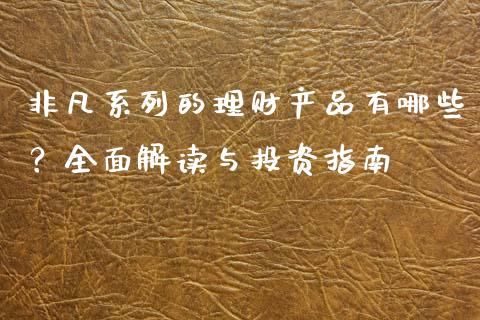 非凡系列的理财产品有哪些
？全面解读与投资指南